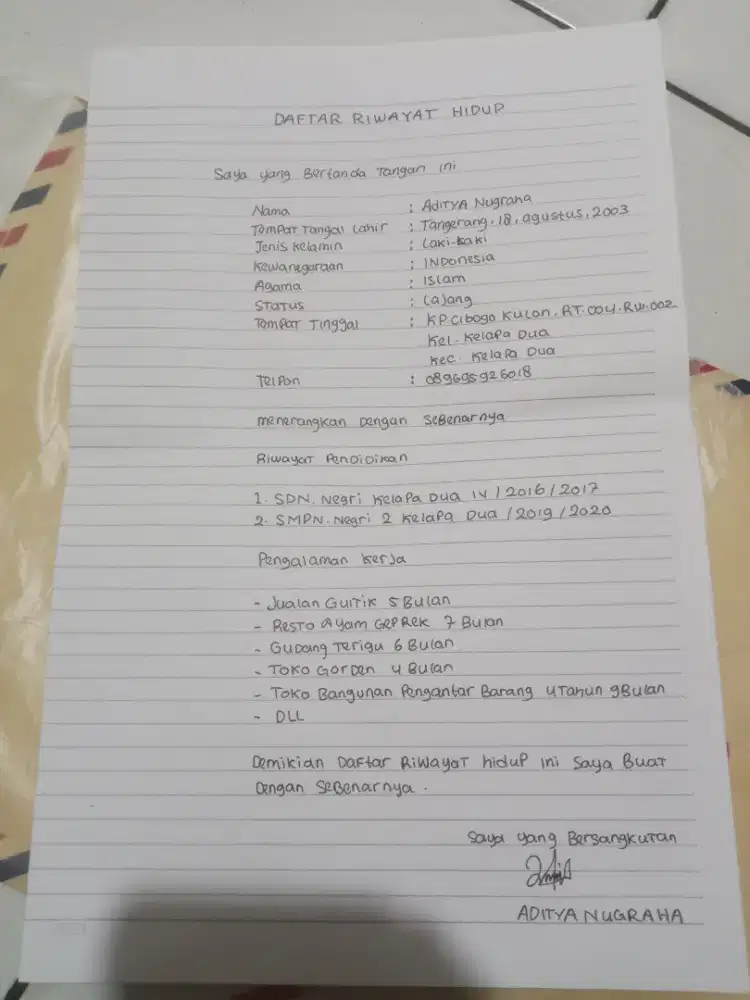 DAFTAR RIWAYAT HIDUP
Saya yang Bertanda Tangan ini
Nama : ADITYA Nugraha
Tempat Tangal Lahir : Tangerang, 18, agustus, 2003
Jenis Kelamin : Laki-Laki
Kewanegaraan : INDonesia
Agama : Islam
STATUS : Lajang
Tempat Tinggal : KP. Cibogo Kulon. RT.004.RW.002
Kel. Kelapa Dua
Kec. Kelapa Dua
Telpon : 089695926018
menerangkan Dengan SeBenarnya
Riwayat Pendidikan
1. SDN. Negri Kelapa Dua IV / 2016 / 2017
2. SMPN. Negri 2 Kelapa Dua / 2019 / 2020
Pengalaman Kerja
- Jualan Gultik 5 Bulan
- Resto Ayam GEPREK 7 Bulan
- Gudang Terigu 6 Bulan
- Toko Gorden 4 Bulan
- Toko Bangunan Pengantar Barang 4 Tahun 9 Bulan
- DLL
Demikian Daftar Riwayat hidup ini Saya Buat
Dengan SeBenarnya.
Saya yang Bersangkutan
ADITYA NUGRAHA